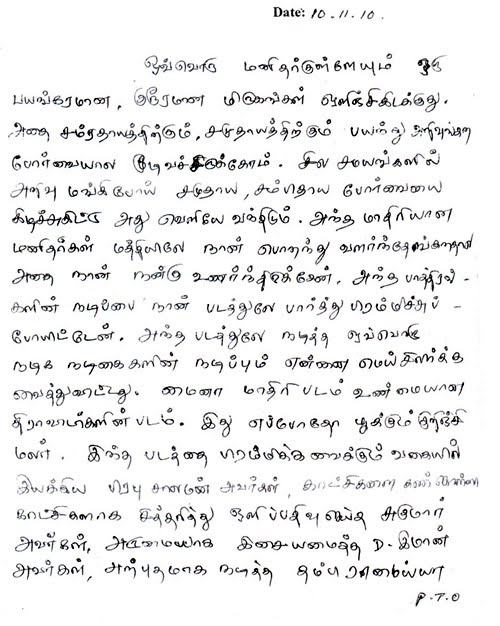 Date: 10.11.10.
ஒவ்வொரு மனிதர்குள்ளேயும் ஒரு
பயங்கரமான, குரூரமான மிருகங்கள் ஒளிஞ்சிகிடக்குது.
அதை சம்ரதாயத்திற்கும், சமுதாயத்திற்கும் பயந்து அறிவுங்கற
போர்வையால மூடிவச்சிருக்கோம். சில சமயங்களில்
அறிவு மங்கிபோய் சமுதாய, சம்ரதாய போர்வையை
கிழிச்சுகிட்டு அது வெளியே வந்திடும். அந்த மாதிரியான
மனிதர்கள் மத்தியிலே நான் பொறந்து வளர்ந்தேங்கறதால
அதை நான் நன்கு உணர்ந்திருக்கிறேன். அந்த பாத்திரங்-
களின் நடிப்பை நான் படத்துலே பார்த்து பிரம்மிச்சுப்-
போயிட்டேன். அந்த படத்துலே நடித்த ஒவ்வொரு
நடிக நடிகைகளின் நடிப்பும் என்னை மெய்சிலிர்க்க
வைத்துவிட்டது. மைனா மாதிரி படம் உண்மையான
திராவிடர்களின் படம். இது எப்போதோ பூக்கும் குறிஞ்சி
மலர். இந்த படத்தை பிரம்மிக்க வைக்கும் வகையில்
இயக்கிய பிரபு சாலமன் அவர்கள், காட்சிகளை கண்கொள்ளா
காட்சிகளாக சித்தரித்து ஒளிப்பதிவு செய்த சுகுமார்
அவர்கள், அருமையாக இசையமைத்த D. இமான்
அவர்கள், அற்புதமாக நடித்த தம்பி ராமைய்யா
P.T.O